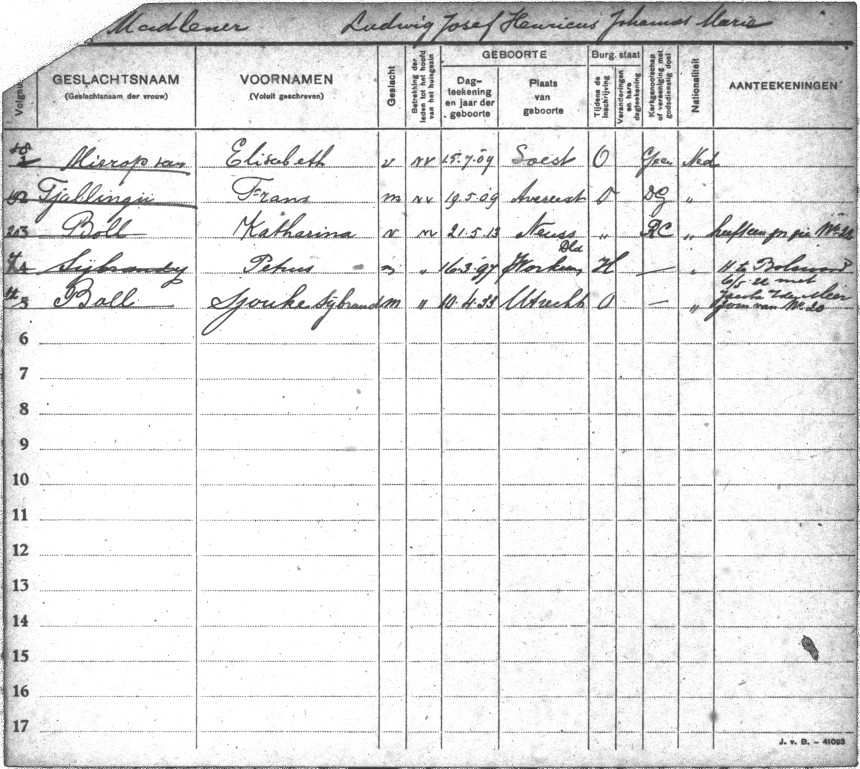 Madlener Ludwig Josef Henricus Johannes Marie
GEBOORTE Burg. staat
Volgnu
GESLACHTSNAAM
(Geslachtsnaam der vrouw)
VOORNAMEN
(Voluit geschreven)
Geslacht
Betrekking der leden tot het hoofd van het huisgezin
Dag-
teekening
en jaar der
geboorte
Plaats
van
geboorte
Tijdens de inschrijving
Veranderingen en hare dagteekening
Kerkgenootschap of vereeniging met godsdienstig doel
Nationaliteit
AANTEEKENINGEN
Mierop van Elisabeth v nv 15.7.09 Soest O Geen Ned
Tjallingii Frans m nv 19.5.09 Avereest O DG "
Boll Katharina v nv 21.5.13 Neuss " RC "
Dld
Sijbrandy Petrus m " 16.3.97 Workum H — "
Boll Sjouke Sijbrand m " 10.4.33 Utrecht O — "
6
7
8
9
10
11
12
13
14
15
16
17
J. v. B. – 41093